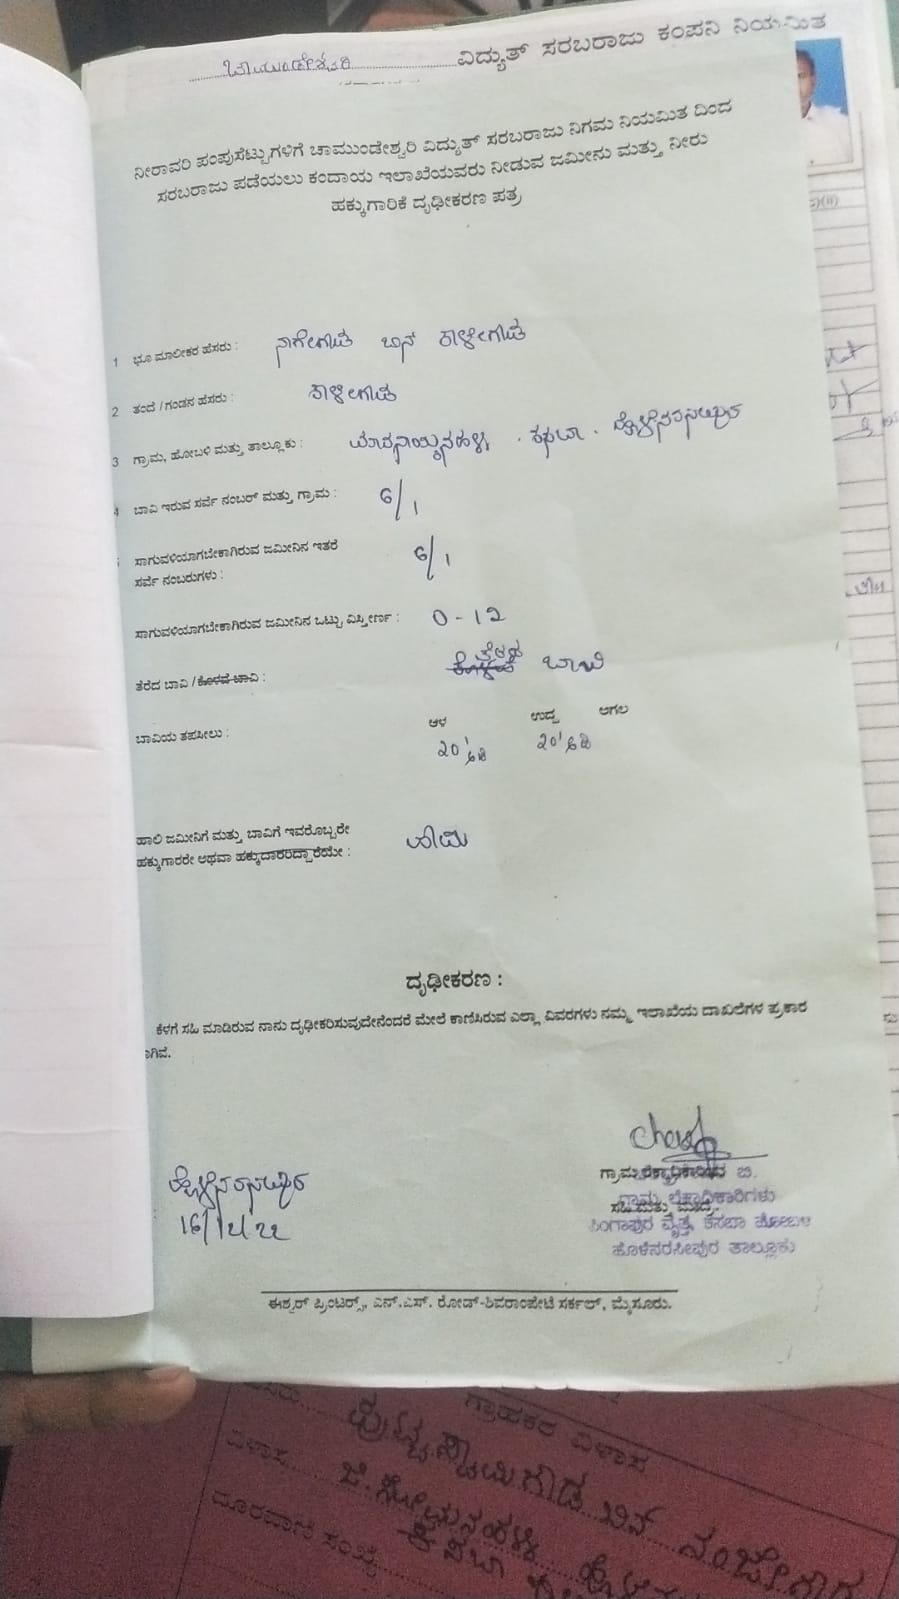 ಚಾಮುಂಡೇಶ್ವರಿ ವಿದ್ಯುತ್ ಸರಬರಾಜು ಕಂಪನಿ ನಿಯಮಿತ
ನೀರಾವರಿ ಪಂಪುಸೆಟ್ಟುಗಳಿಗೆ ಚಾಮುಂಡೇಶ್ವರಿ ವಿದ್ಯುತ್ ಸರಬರಾಜು ನಿಗಮ ನಿಯಮಿತ ದಿಂದ
ಸರಬರಾಜು ಪಡೆಯಲು ಕಂದಾಯ ಇಲಾಖೆಯವರು ನೀಡುವ ಜಮೀನು ಮತ್ತು ನೀರು
ಹಕ್ಕುಗಾರಿಕೆ ದೃಢೀಕರಣ ಪತ್ರ
1 ಭೂ ಮಾಲೀಕರ ಹೆಸರು : ನಾಗೇಗೌಡ ಬಿನ್ ಕಾಳೇಗೌಡ
2 ತಂದೆ / ಗಂಡನ ಹೆಸರು : ಕಾಳೇಗೌಡ
3 ಗ್ರಾಮ, ಹೋಬಳಿ ಮತ್ತು ತಾಲ್ಲೂಕು : ಕಸಬಾ . ಹೊಳೆನರಸೀಪುರ
4 ಬಾವಿ ಇರುವ ಸರ್ವೆ ನಂಬರ್ ಮತ್ತು ಗ್ರಾಮ : 6/1
ಸಾಗುವಳಿಯಾಗಬೇಕಾಗಿರುವ ಜಮೀನಿನ ಇತರೆ
ಸರ್ವೆ ನಂಬರುಗಳು : 6/1
ಸಾಗುವಳಿಯಾಗಬೇಕಾಗಿರುವ ಜಮೀನಿನ ಒಟ್ಟು ವಿಸ್ತೀರ್ಣ : 0-12
ತೆರೆದ ಬಾವಿ / ಕೊಳವೆ ಬಾವಿ : ತೆರೆದ ಬಾವಿ
ಆಳ ಉದ್ದ ಅಗಲ
ಬಾವಿಯ ತಪಸೀಲು : 20' ಅಡಿ 20' ಅಡಿ
ಹಾಲಿ ಜಮೀನಿಗೆ ಮತ್ತು ಬಾವಿಗೆ ಇವರೊಬ್ಬರೇ
ಹಕ್ಕುಗಾರರೇ ಅಥವಾ ಹಕ್ಕುದಾರರಿದ್ದಾರೆಯೇ :
ದೃಢೀಕರಣ :
ಕೆಳಗೆ ಸಹಿ ಮಾಡಿರುವ ನಾನು ದೃಢೀಕರಿಸುವುದೇನೆಂದರೆ ಮೇಲೆ ಕಾಣಿಸಿರುವ ಎಲ್ಲಾ ವಿವರಗಳು ನಮ್ಮ ಇಲಾಖೆಯ ದಾಖಲೆಗಳ ಪ್ರಕಾರ
ಾಗಿವೆ.
ಹೊಳೆನರಸೀಪುರ
16/12/22
ಗ್ರಾಮ ಲೆಕ್ಕಾಧಿಕಾರಿಗಳು
ಸಿಂಗಾಪುರ ವೃತ್ತ, ಕಸಬಾ ಹೋಬಳಿ
ಹೊಳೆನರಸೀಪುರ ತಾಲ್ಲೂಕು
ಈಶ್ವರ್ ಪ್ರಿಂಟರ್ಸ್, ಎನ್.ಎಸ್. ರೋಡ್-ಶಿವರಾಂಪೇಟೆ ಸರ್ಕಲ್, ಮೈಸೂರು.
ಗ್ರಾಹಕರ ವಿಳಾಸ
ಪುಟ್ಟಸ್ವಾಮಿಗೌಡ ಬಿನ್ ನಂಜೇಗೌಡ
ವಿಳಾಸ
ದೂರವಾಣಿ ಸಂಖ್ಯೆ ಕಸಬಾ